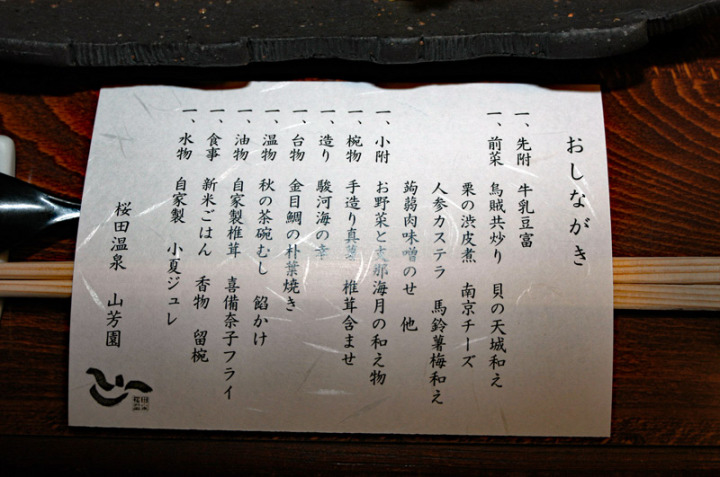 おしながき
一、先附 牛乳豆富
一、前菜 烏賊共炒り 貝の天城和え
栗の渋皮煮 南京チーズ
人参カステラ 馬鈴薯梅和え
蒟蒻肉味噌のせ 他
一、小附 お野菜と支那海月の和え物
一、椀物 手造り真薯 椎茸含ませ
一、造り 駿河海の幸
一、台物 金目鯛の朴葉焼き
一、温物 秋の茶碗むし 餡かけ
一、油物 自家製椎茸 喜備奈子フライ
一、食事 新米ごはん 香物 留椀
一、水物 自家製 小夏ジュレ
桜田温泉 山芳園